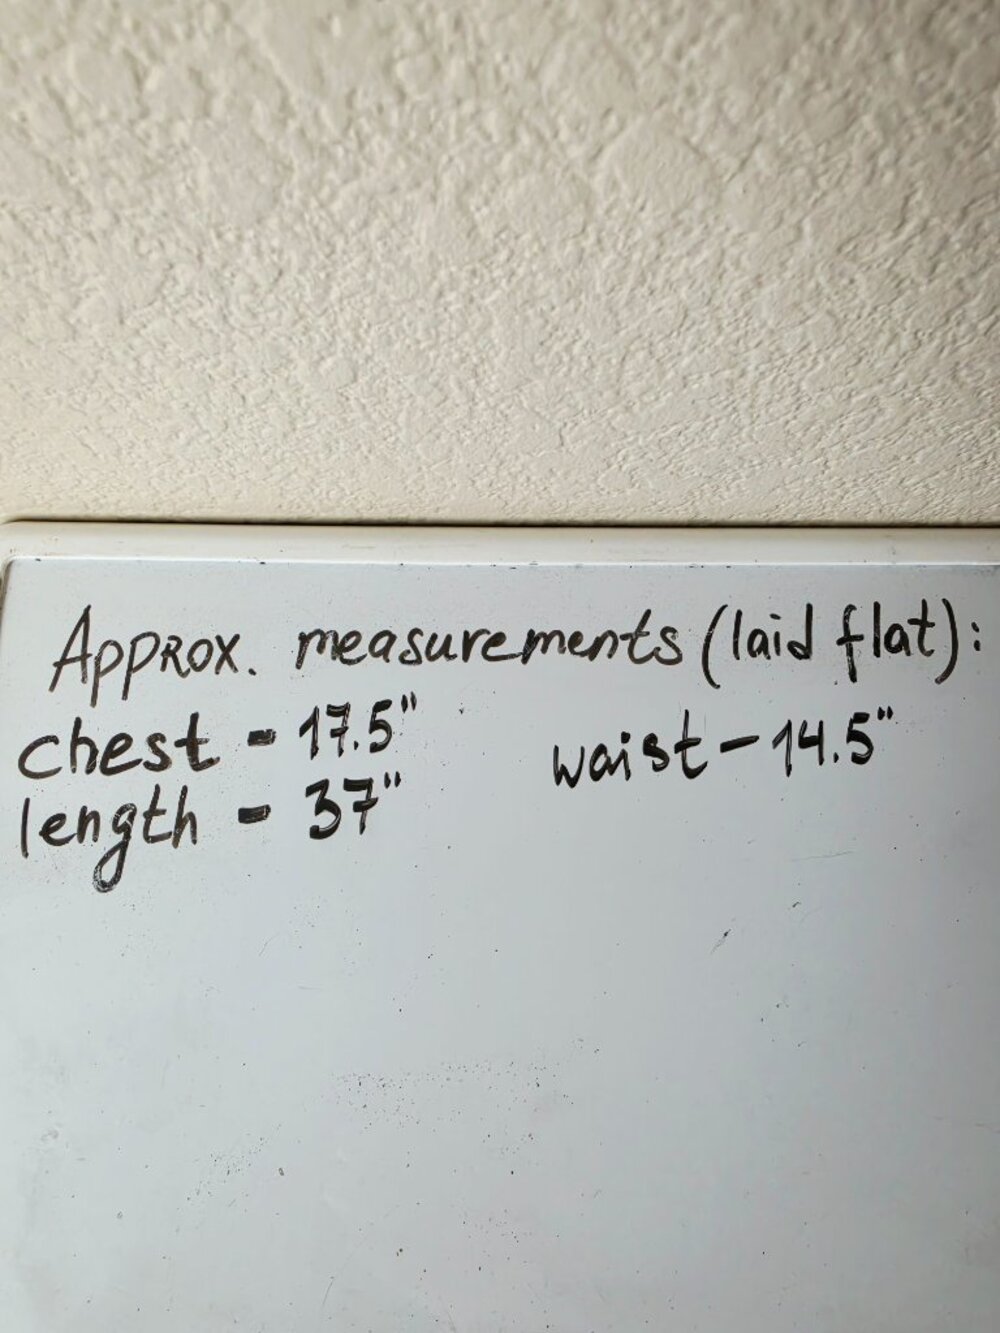 Approx. measurements (laid flat):
chest - 17.5" waist - 14.5"
length - 37"